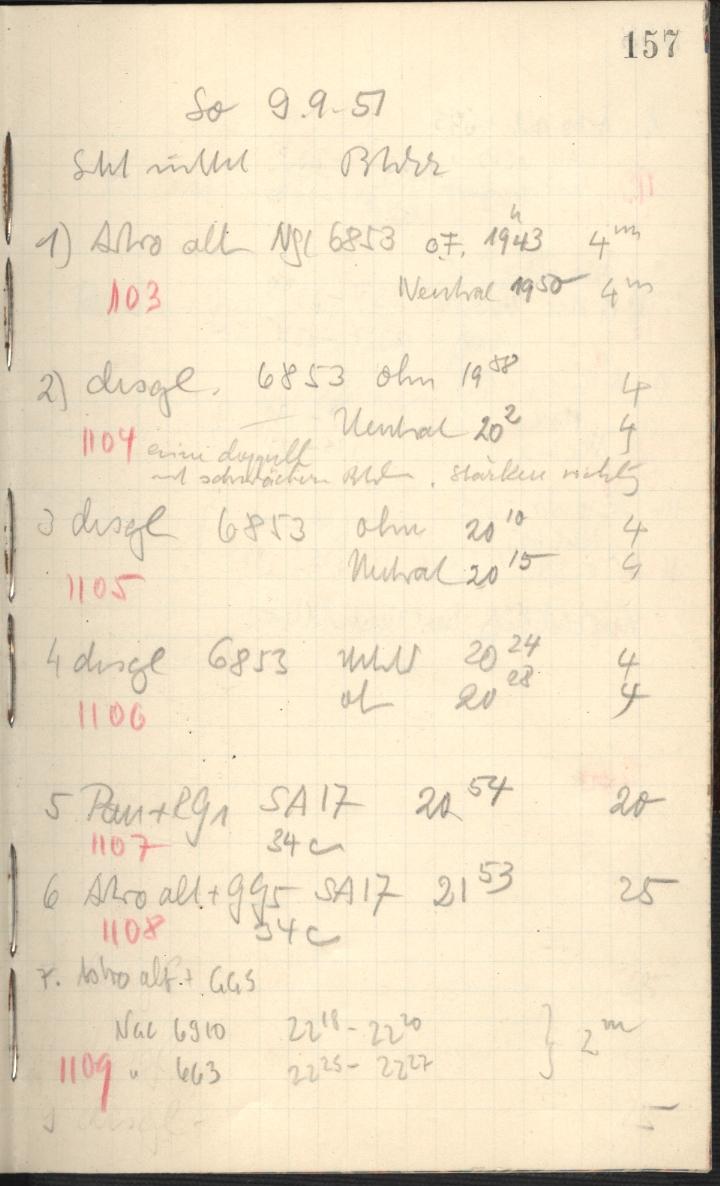 157
So 9.9.51
1) Astro alt Ngc 6853 o.F. 19h43 4m
103 Neutral 1950 4m
2) desgl. 6853 ohne 1958 4
Neutral 202 4
1104 eine doppelt
mit schwächeren, Stärken richtig
3 desgl 6853 ohne 2010 4
Neutral 2015 4
1105
4 desgl 6853 2024 4
1106 2028 4
5 Pan+RG1 SA17 2054 20
1107 34c
6 Astro alt+GG5 SA17 2153 25
1108 34c
7. Astro alt + GG5
NGC 6910 2218 - 2220 } 2m
1109 " 663 2225 - 2227
9 desgl.